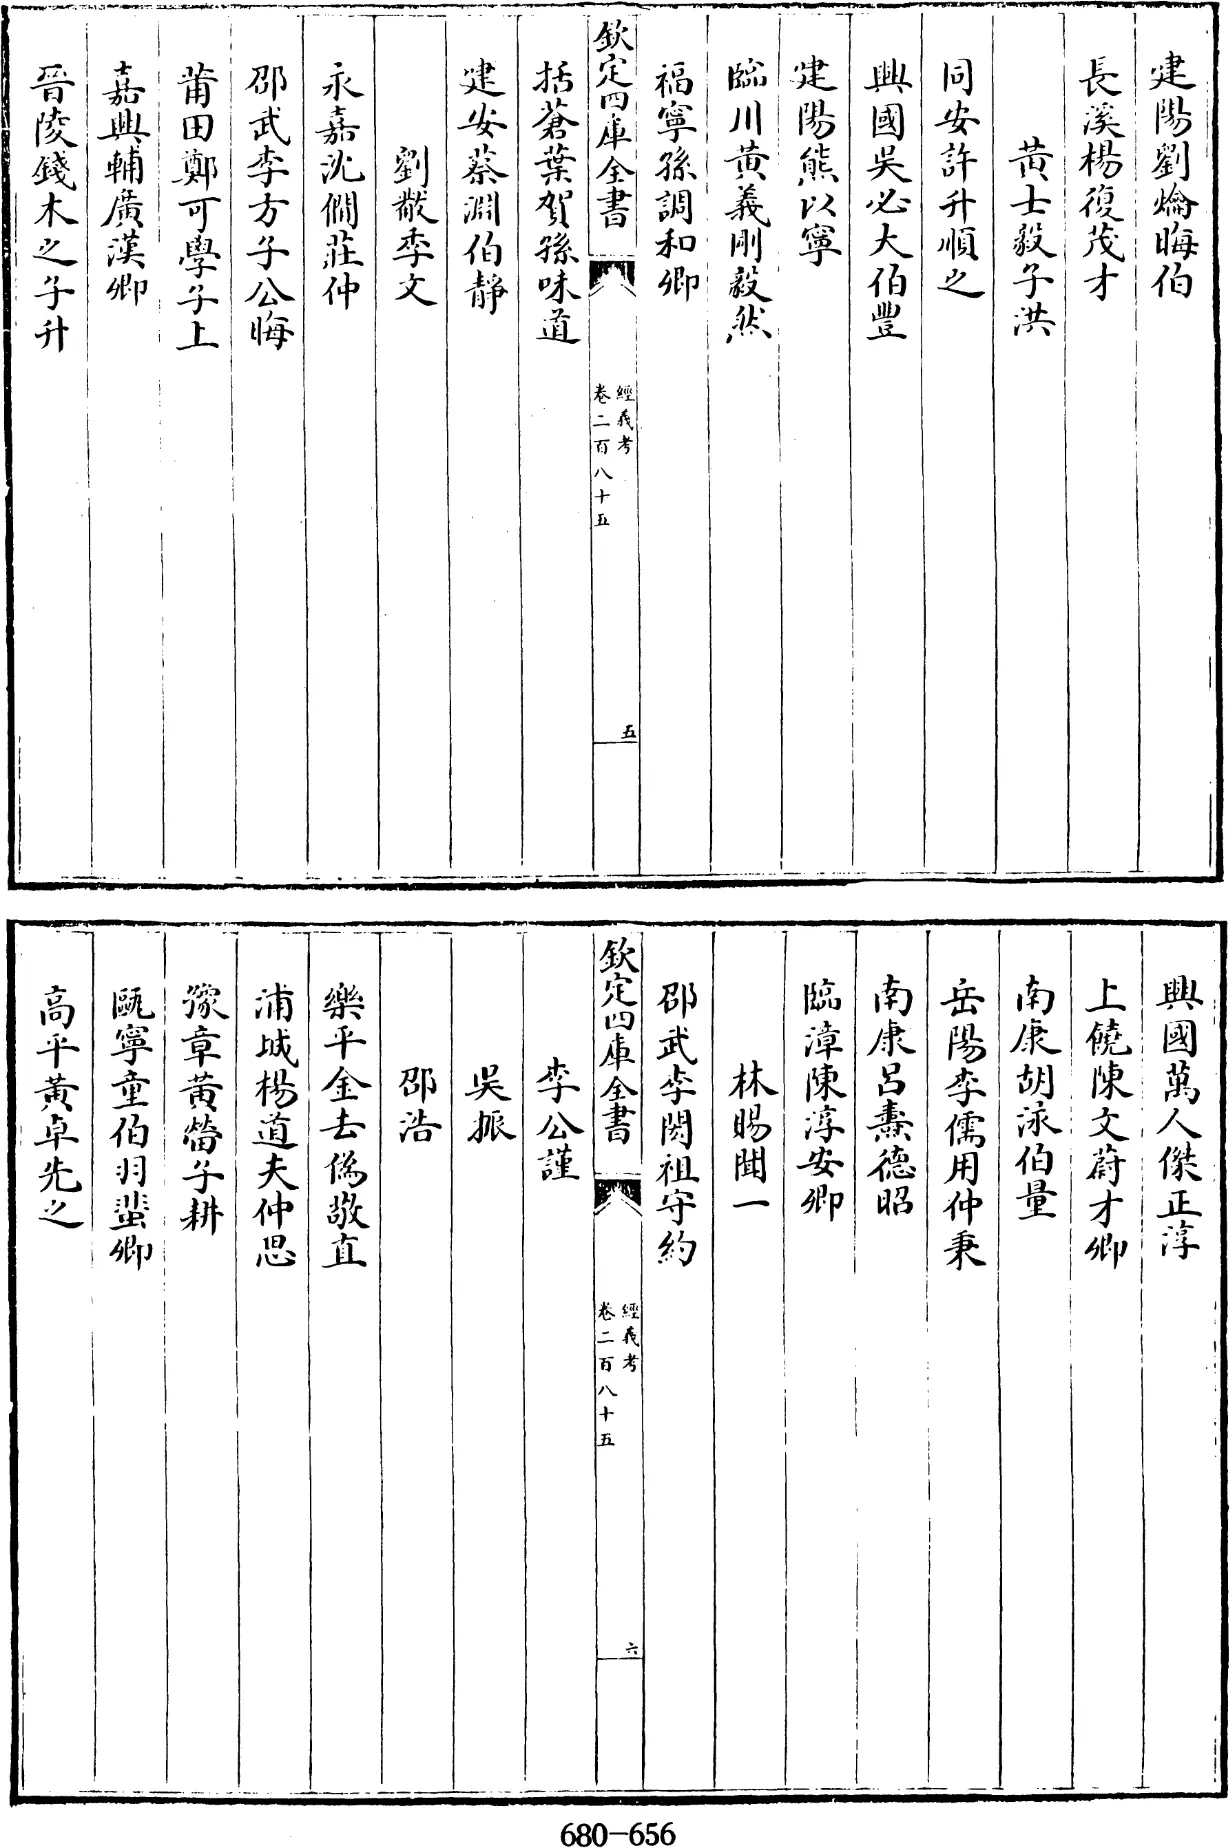 建陽劉爚晦伯
長溪楊復茂才
黃士毅子洪
同安許升順之
興國吳必大伯豐
建陽熊以寧
臨川黃義剛毅然
福寧孫調和卿
欽定四庫全書
經義考
卷二百八十五
五
括蒼葉賀孫味道
建安蔡淵伯靜
劉黻季文
永嘉沈僩莊仲
邵武李方子公晦
莆田鄭可學子上
嘉興輔廣漢卿
晉陵錢木之子升
興國萬人傑正淳
上饒陳文蔚才卿
南康胡泳伯量
岳陽李儒用仲秉
南康呂燾德昭
臨漳陳淳安卿
林賜聞一
邵武李閎祖守約
欽定四庫全書
經義考
卷二百八十五
六
李公謹
吳振
邵浩
樂平金去偽敬直
浦城楊道夫仲思
豫章黃㽦子耕
甌寧童伯羽蜚卿
高平黃卓先之
680-656